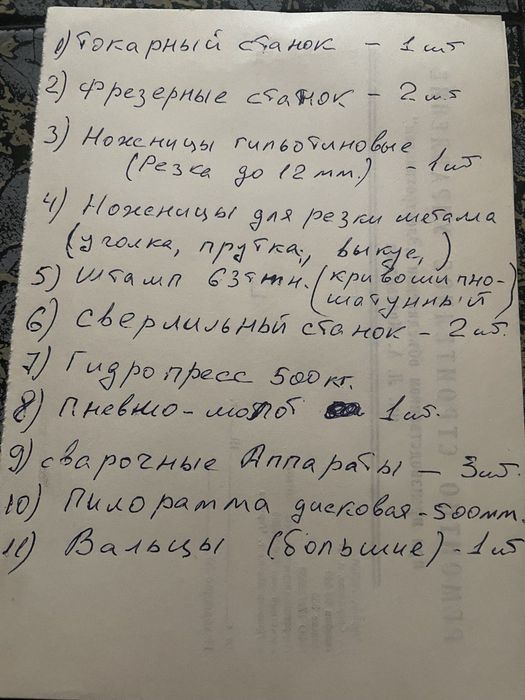 1) Токарный станок - 1 шт
2) Фрезерные станок - 2 шт
3) Ножницы гильотиновые
(Резка до 12 мм.) - 1 шт
4) Ножницы для резки метала
(уголка, прутка,, )
5) Штамп 63 тн. (кривошипно-
шатунный)
6) Сверлильный станок - 2 шт.
7) Гидропресс 500 кг.
8) Пневмо-молот 1 шт.
9) сварочные Аппараты - 3 шт.
10) Пилорамма дисковая - 500 мм.
11) Вальцы (большие) - 1 шт